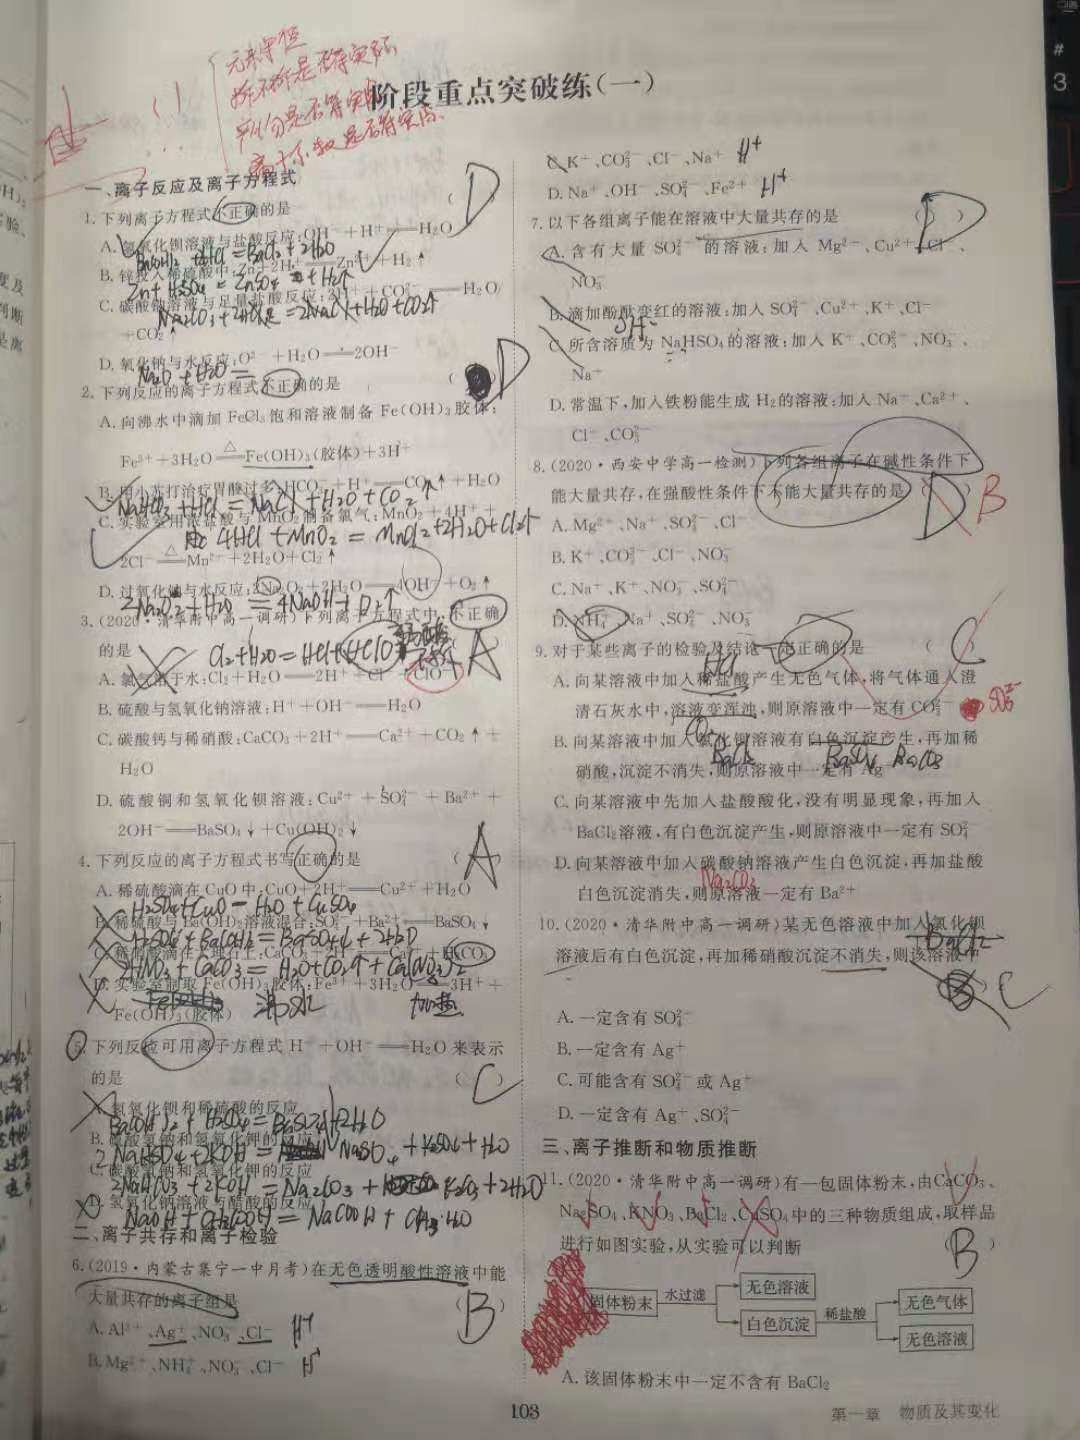 阶段重点突破练(一)
一、离子反应及离子方程式
1.下列离子方程式不正确的是 ( ) D
A.氢氧化钡溶液与盐酸反应:OH⁻+H⁺══H₂O
Ba(OH)₂+2HCl=BaCl₂+2H₂O
B.锌投入稀硫酸中:Zn+2H⁺══Zn²⁺+H₂↑
Zn+H₂SO₄=ZnSO₄+H₂↑
C.碳酸钠溶液与足量盐酸反应:2H⁺+CO₃²⁻══H₂O
Na₂CO₃+2HCl足=2NaCl+H₂O+CO₂↑
+CO₂↑
D.氧化钠与水反应:O²⁻+H₂O══2OH⁻
Na₂O+H₂O=
2.下列反应的离子方程式不正确的是 ( ) D
A.向沸水中滴加FeCl₃饱和溶液制备Fe(OH)₃胶体:
Fe³⁺+3H₂O══Fe(OH)₃(胶体)+3H⁺
△
B.用小苏打治疗胃酸过多:HCO₃⁻+H⁺══CO₂↑+H₂O
NaHCO₃+HCl=NaCl+H₂O+CO₂↑
C.实验室用浓盐酸与MnO₂制备氯气:MnO₂+4H⁺+
4HCl+MnO₂=MnCl₂+2H₂O+Cl₂↑
2Cl⁻══Mn²⁺+2H₂O+Cl₂↑
△
D.过氧化钠与水反应:2Na₂O₂+2H₂O══4OH⁻+O₂↑
2Na₂O₂+H₂O=4NaOH+O₂↑
3.(2020·清华附中高一调研)下列离子方程式中,不正确
的是 A
Cl₂+H₂O=HCl+HClO
A.氯气溶于水:Cl₂+H₂O══2H⁺+Cl⁻+ClO⁻
B.硫酸与氢氧化钠溶液:H⁺+OH⁻══H₂O
C.碳酸钙与稀硝酸:CaCO₃+2H⁺══Ca²⁺+CO₂↑+
H₂O
D.硫酸铜和氢氧化钡溶液:Cu²⁺+SO₄²⁻+Ba²⁺+
2OH⁻══BaSO₄↓+Cu(OH)₂↓
4.下列反应的离子方程式书写正确的是 ( ) A
A.稀硫酸滴在CuO中:CuO+2H⁺══Cu²⁺+H₂O
H₂SO₄+CuO=H₂O+CuSO₄
B.稀硫酸与Ba(OH)₂溶液混合:SO₄²⁻+Ba²⁺══BaSO₄↓
H₂SO₄+Ba(OH)₂=BaSO₄↓+2H₂O
2HNO₃+CaCO₃=H₂O+CO₂↑+Ca(NO₃)₂
D.实验室制取Fe(OH)₃胶体:Fe³⁺+3H₂O══3H⁺+
Fe(OH)₃(胶体)
沸水 加热
5.下列反应可用离子方程式H⁺+OH⁻══H₂O来表示
的是 ( ) C
A.氢氧化钡和稀硫酸的反应
Ba(OH)₂+H₂SO₄=BaSO₄↓+2H₂O
B.硫酸氢钠和氢氧化钾的反应
C.碳酸氢钠和氢氧化钾的反应
D.氢氧化钠溶液与醋酸的反应
二、离子共存和离子检验
6.(2019·内蒙古集宁一中月考)在无色透明酸性溶液中能
大量共存的离子组是 ( ) B
A.Al³⁺、Ag⁺、NO₃⁻、Cl⁻ H⁺
B.Mg²⁺、NH₄⁺、NO₃⁻、Cl⁻ H⁺
C.K⁺、CO₃²⁻、Cl⁻、Na⁺ H⁺
D.Na⁺、OH⁻、SO₄²⁻、Fe²⁺ H⁺
7.以下各组离子能在溶液中大量共存的是 ( ) D
A.含有大量SO₄²⁻的溶液:加入Mg²⁻、Cu²⁺、Cl⁻、
NO₃⁻
B.滴加酚酞变红的溶液:加入SO₄²⁻、Cu²⁺、K⁺、Cl⁻
OH⁻
C.所含溶质为NaHSO₄的溶液:加入K⁺、CO₃²⁻、NO₃⁻、
Na⁺
D.常温下,加入铁粉能生成H₂的溶液:加入Na⁺、Ca²⁺、
Cl⁻、CO₃²⁻
8.(2020·西安中学高一检测)下列各组离子在碱性条件下
能大量共存,在强酸性条件下不能大量共存的是 ( ) D B
A.Mg²⁺、Na⁺、SO₄²⁻、Cl⁻
B.K⁺、CO₃²⁻、Cl⁻、NO₃⁻
C.Na⁺、K⁺、NO₃⁻、SO₄²⁻
D.NH₄⁺、Na⁺、SO₄²⁻、NO₃⁻
9.对于某些离子的检验及结论一定正确的是 ( ) C
HCl
A.向某溶液中加入稀盐酸产生无色气体,将气体通入澄
清石灰水中,溶液变浑浊,则原溶液中一定有CO₃²⁻ SO₃²⁻
B.向某溶液中加入氯化钡溶液有白色沉淀产生,再加稀
BaCl₂ BaSO₄ BaCO₃
硝酸,沉淀不消失,则原溶液中一定有Ag⁺
C.向某溶液中先加入盐酸酸化,没有明显现象,再加入
BaCl₂溶液,有白色沉淀产生,则原溶液中一定有SO₄²⁻
D.向某溶液中加入碳酸钠溶液产生白色沉淀,再加盐酸
Na₂CO₃
白色沉淀消失,则原溶液一定有Ba²⁺
10.(2020·清华附中高一调研)某无色溶液中加入氯化钡
BaCl₂
溶液后有白色沉淀,再加稀硝酸沉淀不消失,则该溶液中
C
A.一定含有SO₄²⁻
B.一定含有Ag⁺
C.可能含有SO₄²⁻或Ag⁺
D.一定含有Ag⁺、SO₄²⁻
三、离子推断和物质推断
11.(2020·清华附中高一调研)有一包固体粉末,由CaCO₃、
Na₂SO₄、KNO₃、BaCl₂、CuSO₄中的三种物质组成,取样品
进行如图实验,从实验可以判断 ( ) B
固体粉末 水过滤 无色溶液
白色沉淀 稀盐酸 无色气体
无色溶液
A.该固体粉末中一定不含有BaCl₂
103
第一章 物质及其变化
# 3